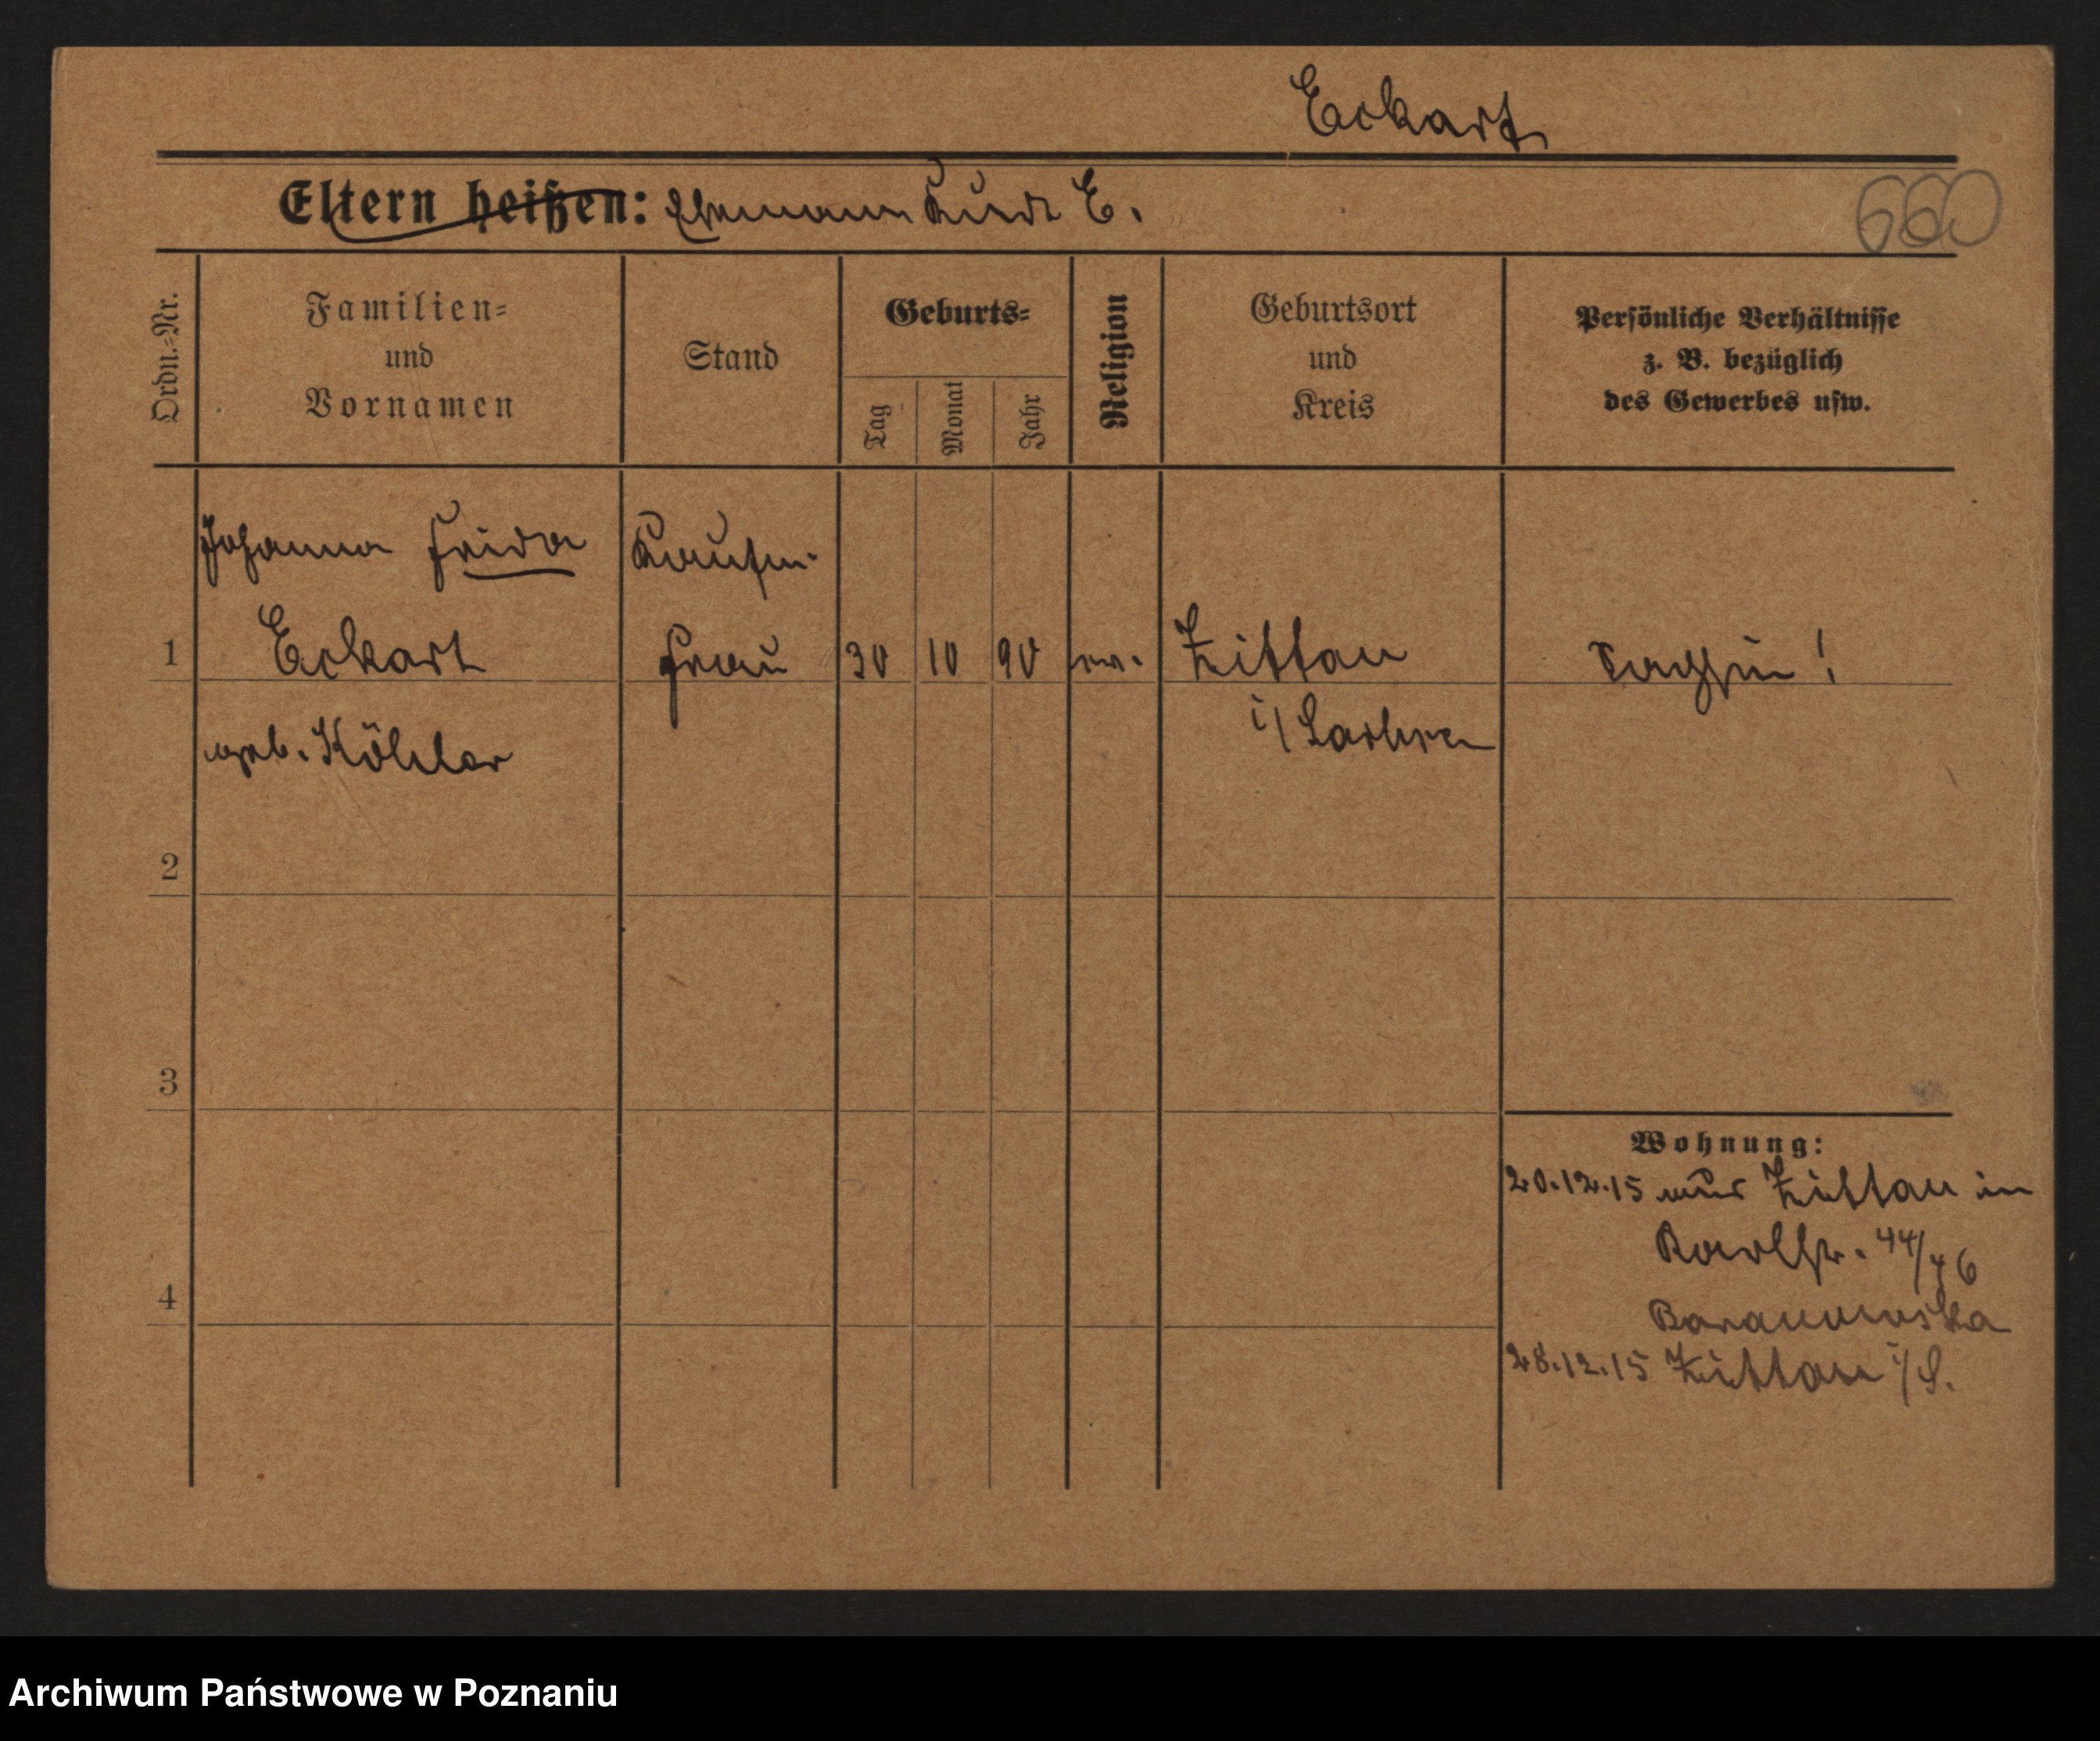 Eckart
Eltern heißen: Ehemann Kurt E.
660
Ordn.-Nr.
Familien-
und
Vornamen
Stand
Geburts-
Tag
Monat
Jahr
Religion
Geburtsort
und
Kreis
Persönliche Verhältnisse
z. B. bezüglich
des Gewerbes usw.
Johanna Frida
Kaufm.
1 Eckart
frau
30 10 90 ev. Zittau
Sachsin!
i/ Sachsen
geb. Köhler
2
3
Wohnung:
20.12.15 aus Zittau in
Karlstr. 44/46
4
Baranowska
28.12.15 Zittau i/S.
Archiwum Państwowe w Poznaniu